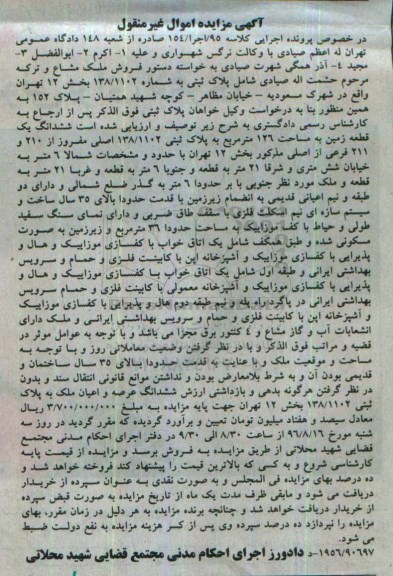 آگهی مزایده اموال غیرمنقول
در خصوص پرونده اجرایی کلاسه ۹۵/اجرا/۱۵٤ صادره از شعبه ۱٤۸ دادگاه عمومی
تهران له اعظم صیادی با وکالت نرگس شهریاری و علیه ۱- اکرم ۲- ابوالفضل ۳-
مجید ٤- آذر همگی شهرت صیادی به خواسته دستور فروش ملک مشاع و ترکه
مرحوم حشمت اله صیادی شامل پلاک ثبتی به شماره ۱۳۸/۱۱۰۲ بخش ۱۲ تهران
واقع در شهرک مسعودیه - خیابان مظاهر - کوچه شهید همتیان - پلاک ۱۵۲ به
همین منظور بنا به درخواست وکیل خواهان پلاک ثبتی فوق الذکر پس از ارجاع به
کارشناس رسمی دادگستری به شرح زیر توصیف و ارزیابی شده است ششدانگ یک
قطعه زمین به مساحت ۱۲٦ مترمربع به پلاک ثبتی ۱۳۸/۱۱۰۲ اصلی مفروز از ۲۱۰ و
۲۱۱ فرعی از اصلی مذکور بخش ۱۲ تهران با حدود و مشخصات شمالا ٦ متر به
خیابان شش متری و شرقا ۲۱ متر به قطعه و جنوبا ٦ متر به قطعه و غربا ۲۱ متر به
قطعه و ملک مورد نظر جنوبی با بر حدودا ٦ متر به گذر ضلع شمالی و دارای دو
طبقه و نیم اعیانی قدیمی به انضمام زیرزمین با قدمت حدودا بالای ۳۵ سال ساخت و
سیستم سازه ای نیم اسکلت فلزی با سقف طاق ضربی و دارای نمای سنگ سفید
طولی و حیاط با کف موزاییک به مساحت حدودا ۳٦ مترمربع و زیرزمین به صورت
مسکونی شده و طبق همکف شامل یک اتاق خواب با کفسازی موزاییک و هال و
پذیرایی با کفسازی موزاییک و آشپزخانه اپن با کابینت فلزی و حمام و سرویس
بهداشتی ایرانی و طبقه اول شامل یک اتاق خواب با کفسازی موزاییک و هال و
پذیرایی با کفسازی موزاییک و آشپزخانه معمولی با کابینت فلزی و حمام و سرویس
بهداشتی ایرانی در پاگرد راه پله و نیم طبقه دوم هال و پذیرایی با کفسازی موزاییک
و آشپزخانه اپن با کابینت فلزی و حمام و سرویس بهداشتی ایرانی و ملک دارای
انشعابات آب و گاز مشاع و ٤ کنتور برق مجزا می باشد و با توجه به عوامل موثر در
قضیه و مراتب فوق الذکر و با در نظر گرفتن وضعیت معاملاتی روز و با توجه به
مساحت و موقعیت ملک و با عنایت به قدمت حدودا بالای ۳۵ سال ساختمان و
قدیمی بودن آن و به شرط بلامعارض بودن و نداشتن موانع قانونی انتقال سند و بدون
در نظر گرفتن هرگونه بدهی و بازداشتی ارزش ششدانگ عرصه و اعیان ملک به پلاک
ثبتی ۱۳۸/۱۱۰۲ بخش ۱۲ تهران جهت پایه مزایده به مبلغ ۳/۷۰۰/۰۰۰/۰۰۰ ریال
معادل سیصد و هفتاد میلیون تومان تعیین و برآورد گردیده که مقرر گردید در روز سه
شنبه مورخ ۹٦/۸/۱٦ از ساعت ۸/۳۰ الی ۹/۳۰ در دفتر اجرای احکام مدنی مجتمع
قضایی شهید محلاتی از طریق مزایده به فروش برسد و مزایده از قیمت پایه
کارشناسی شروع و به کسی که بالاترین قیمت را پیشنهاد کند فروخته خواهد شد و
ده درصد بهای مزایده فی المجلس و به صورت نقدی به عنوان سپرده از خریدار
دریافت می شود و مابقی ظرف مدت یک ماه از تاریخ مزایده به صورت قبض سپرده
از خریدار دریافت خواهد شد و چنانچه برنده مزایده به هر دلیل در زمان مقرر، بهای
مزایده را نپردازد ده درصد سپرده وی پس از کسر هزینه مزایده به نفع دولت ضبط
می شود.
۱۹۵٦/۹۰٦۹۷-د دادورز اجرای احکام مدنی مجتمع قضایی شهید محلاتی